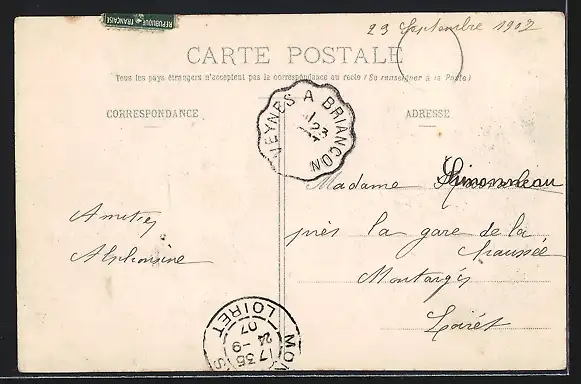 REPUBLIQUE FRANÇAISE
23 Septembre 1907
CARTE POSTALE
Tous les pays étrangers n'acceptent pas la correspondance au recto (Se renseigner à la Poste)
CORRESPONDANCE
ADRESSE
VEYNES A BRIANÇON
23
Madame
près la gare de la
Chaussée
Montargis
Loiret
Amitiés
Alphonsine
LOIRET
17 35
24 -9
07